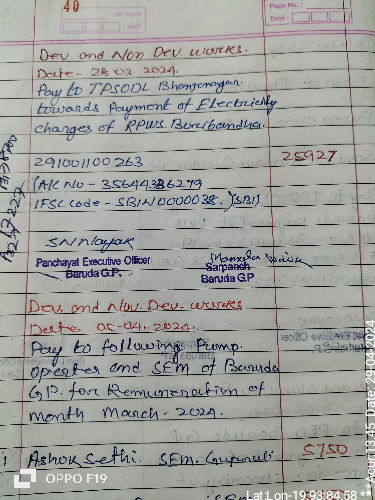 40
Page No. :
Date :
Dev. and Non Dev. works.
Date - 28.03.2024.
Pay to TPSODL Bhanjanagar
towards Payment of Electricity
charges of RPWS. Buribandha.
291001100263 25927
(A/C No - 35644336279
IFSC code - SBIN0000038.)(SBI)
SN Nayak
Panchayat Executive Officer
Baruda G.P.
Sarpanch
Baruda G.P
Dev. and Non. Dev. works
Date 05-04.2024.
Pay to following Pump
operter and SEM of Baruda
G.P. for Remuneration of
month March - 2024.
1 Ashok Sethi. SEM. 5750
OPPO F19
13:45 Date:29-04-2024